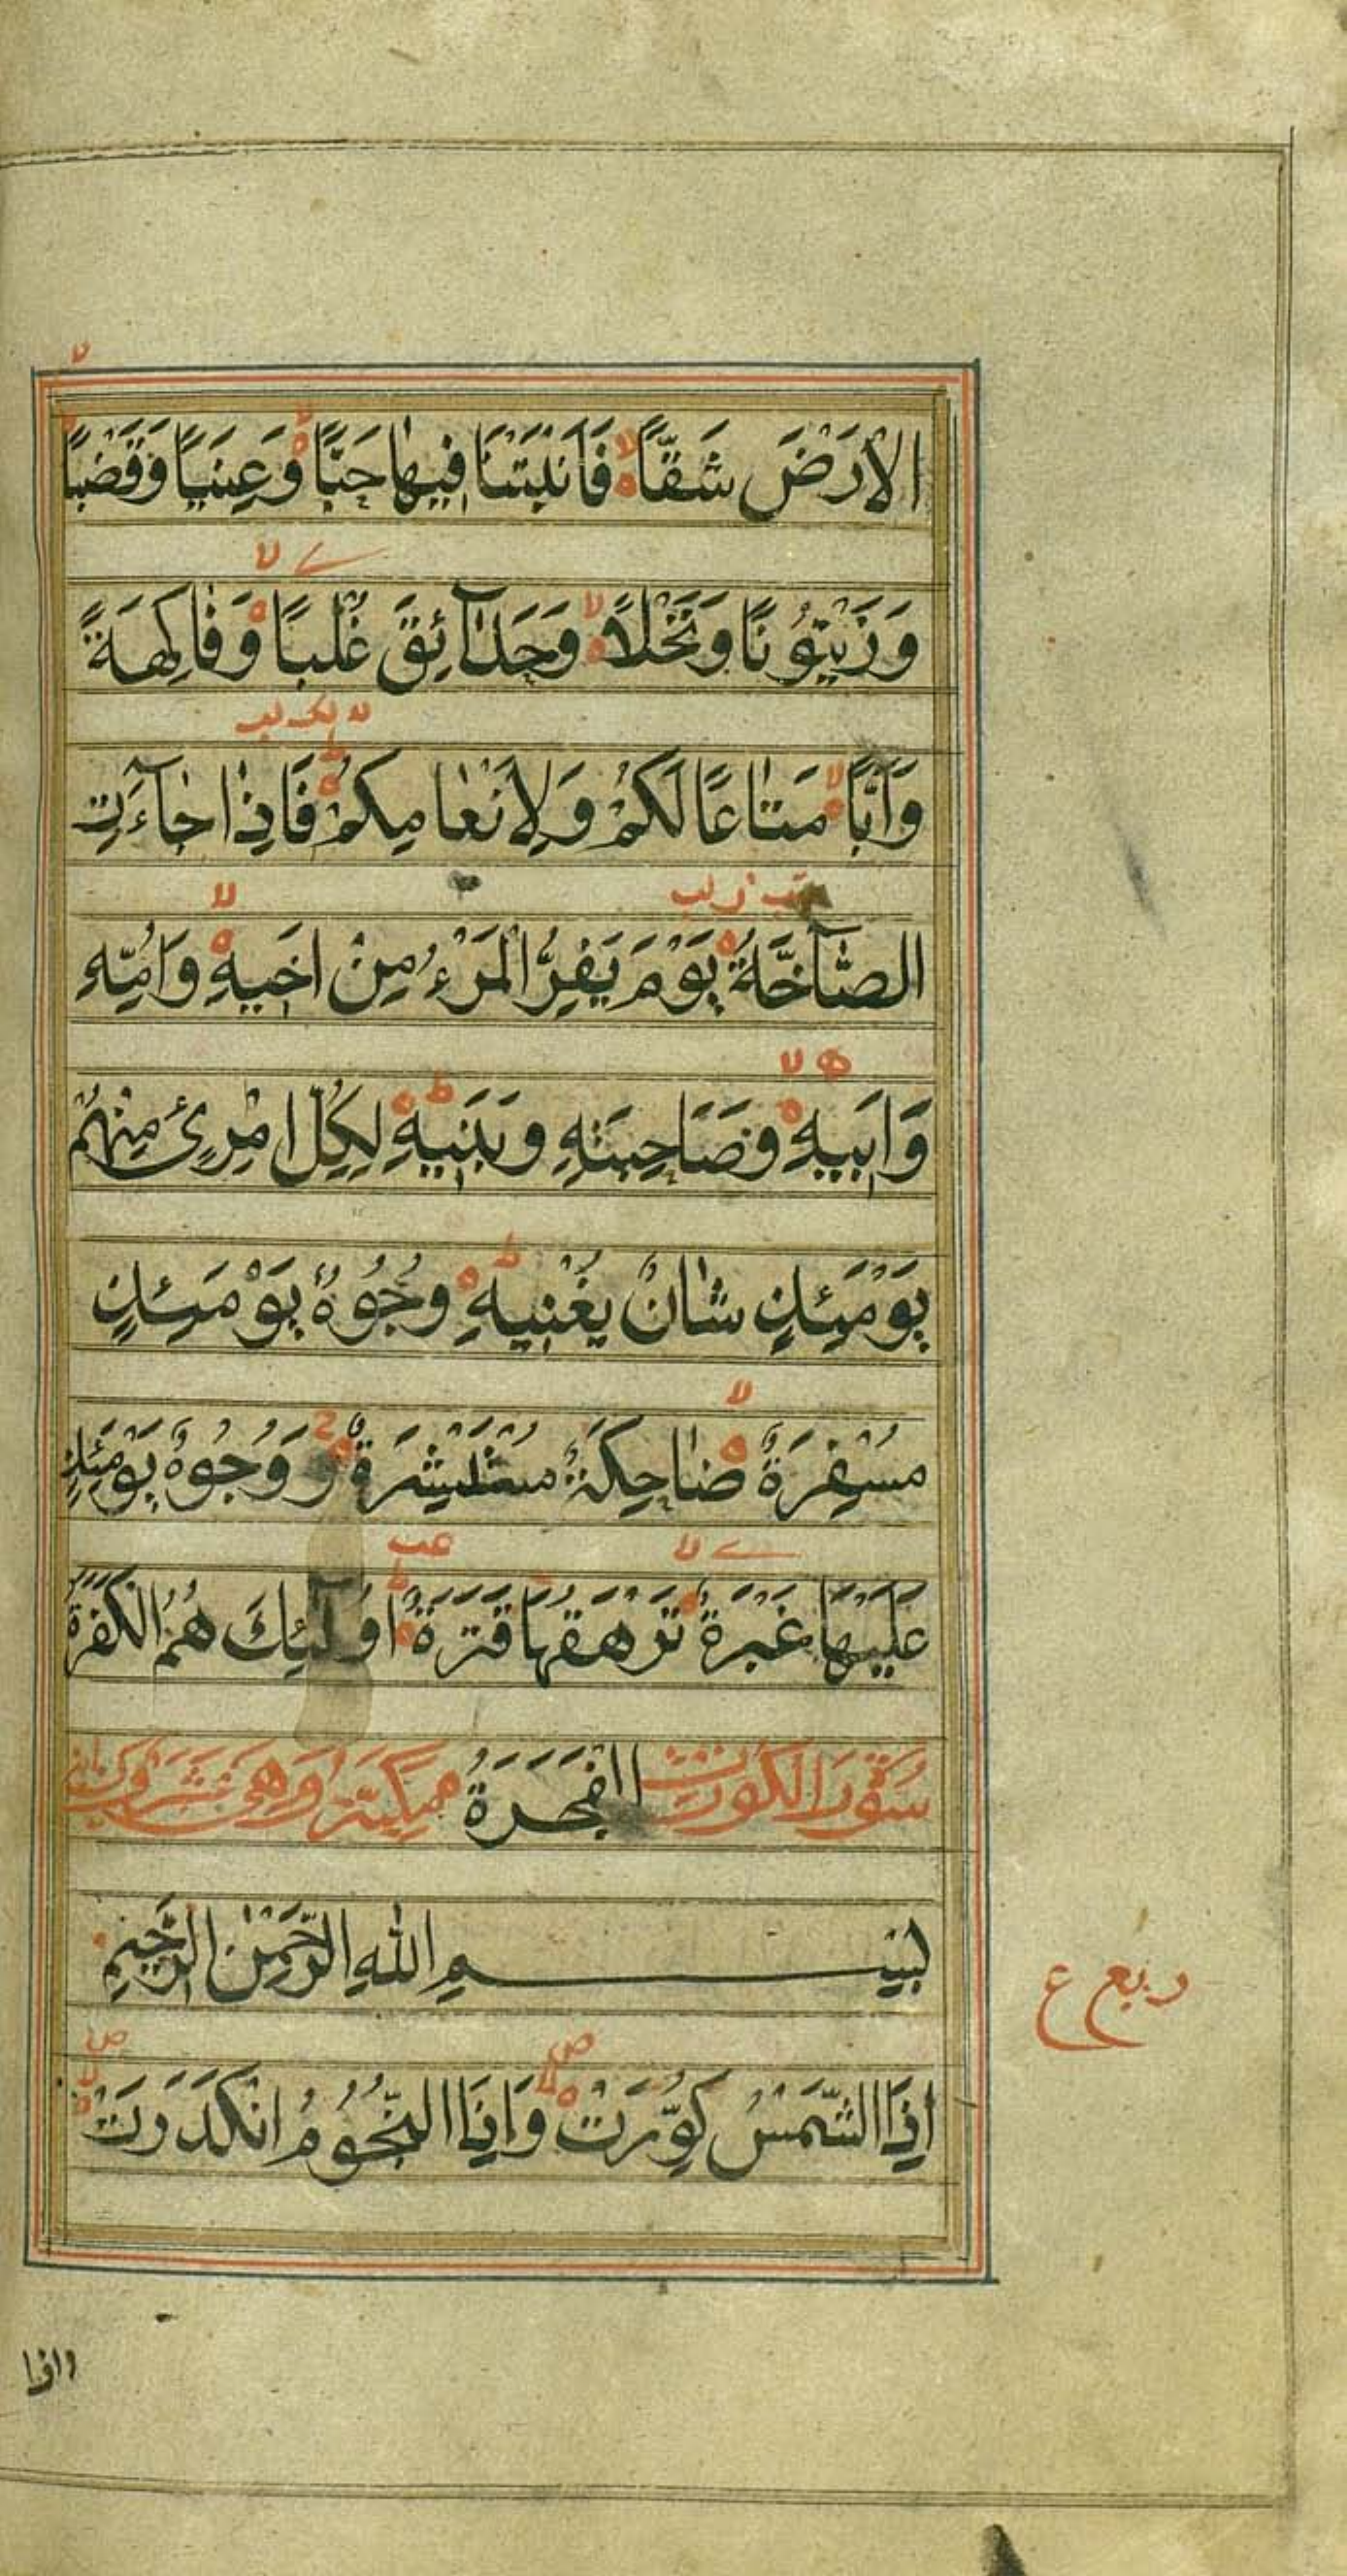 الْاَرْضَ شَقًّا فَاَنْبَتْنَا فِيهَا حَبًّا وَعِنَبًا وَقَضْبًا
وَزَيْتُونًا وَنَخْلًا وَحَدَآئِقَ غُلْبًا وَفَاكِهَةً
وَاَبًّا مَتَاعًا لَكُمْ وَلِاَنْعَامِكُمْ فَاِذَا جَاءَتِ
الصَّآخَّةُ يَوْمَ يَفِرُّ الْمَرْءُ مِنْ اَخِيهِ وَاُمِّهِ
وَاَبِيهِ وَصَاحِبَتِهِ وَبَنِيهِ لِكُلِّ امْرِئٍ مِنْهُمْ
يَوْمَئِذٍ شَانٌ يُغْنِيهِ وُجُوهٌ يَوْمَئِذٍ
مُسْفِرَةٌ ضَاحِكَةٌ مُسْتَبْشِرَةٌ وَوُجُوهٌ يَوْمَئِذٍ
عَلَيْهَا غَبَرَةٌ تَرْهَقُهَا قَتَرَةٌ اُولٰٓئِكَ هُمُ الْكَفَرَةُ
سورة الكورت الْفَجَرَةُ مكية وهى
بِسْمِ اللهِ الرَّحْمٰنِ الرَّحِيمِ
اِذَا الشَّمْسُ كُوِّرَتْ وَاِذَا النُّجُومُ انْكَدَرَتْ
ربع ع
واذا